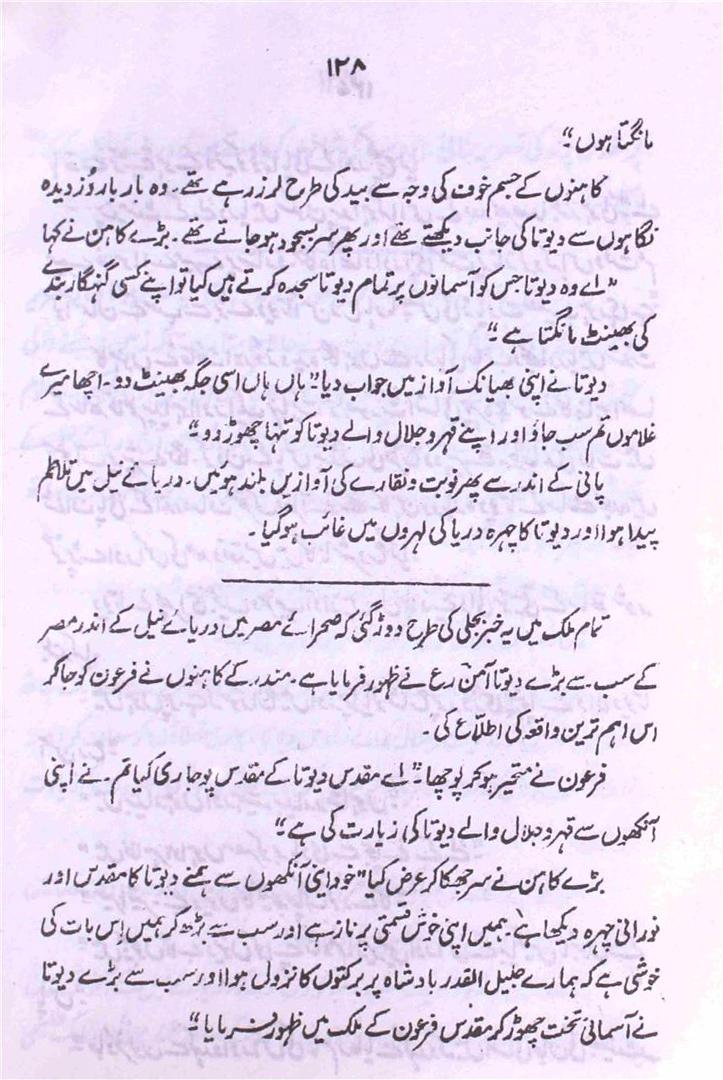 ۱۲۸
مانگتا ہوں“
کاہنوں کے جسم خوف کی وجہ سے بید کی طرح لرز رہے تھے۔ وہ بار بار دُزدیدہ
نگاہوں سے دیوتا کی جانب دیکھتے تھے اور پھر سر بسجود ہو جاتے تھے۔ بڑے کاہن نے کہا
”اے وہ دیوتا جس کو آسمانوں پر تمام دیوتا سجدہ کرتے ہیں کیا تو اپنے کسی گنہگار بندے
کی بھینٹ مانگتا ہے“
دیوتا نے اپنی بھیانک آواز میں جواب دیا ”ہاں ہاں اسی جگہ بھینٹ دو۔ اچھا میرے
غلاموں تم سب جاؤ اور اپنے قہر و جلال والے دیوتا کو تنہا چھوڑ دو“
پانی کے اندر سے پھر نوبت و نقارے کی آوازیں بلند ہوئیں۔ دریائے نیل میں تلاطم
پیدا ہوا اور دیوتا کا چہرہ دریا کی لہروں میں غائب ہو گیا۔
تمام ملک میں یہ خبر بجلی کی طرح دوڑ گئی کہ صحرائے مصر میں دریائے نیل کے اندر مصر
کے سب سے بڑے دیوتا آمن رع نے ظہور فرمایا ہے۔ مندر کے کاہنوں نے فرعون کو جا کر
اس اہم ترین واقعہ کی اطلاع کی۔
فرعون نے متحیر ہو کر پوچھا ”اے مقدس دیوتا کے مقدس پوجاری کیا تم۔ نے اپنی
آنکھوں سے قہر و جلال والے دیوتا کی زیارت کی ہے“
بڑے کاہن نے سر جھکا کر عرض کیا ”خود اپنی آنکھوں سے ہمنے دیوتا کا مقدس اور
نورانی چہرہ دیکھا ہے، ہمیں اپنی خوش قسمتی پر ناز ہے اور سب سے بڑھ کر ہمیں اِس بات کی
خوشی ہے کہ ہمارے جلیل القدر بادشاہ پر برکتوں کا نزول ہوا اور سب سے بڑے دیوتا
نے آسمانی تخت چھوڑ کر مقدس فرعون کے ملک میں ظہور فرمایا“